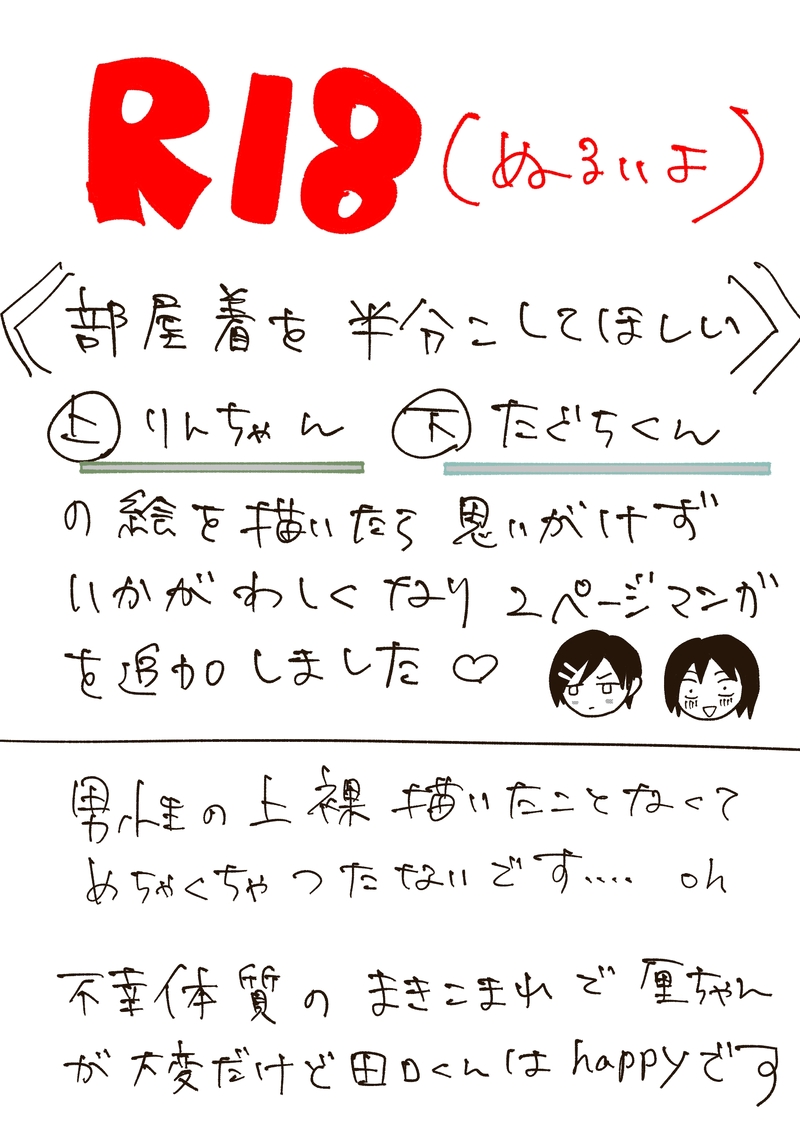 R18(ぬるいよ)
《部屋着を半分こしてほしい》
上りんちゃん 下たぐちくん
の絵を描いたら思いがけず
いかがわしくなり2ページマンガ
を追加しました♡
男性の上裸描いたことなくて
めちゃくちゃつたないです.... oh
不幸体質のまきこまれで厘ちゃん
が大変だけど田口くんはhappyです